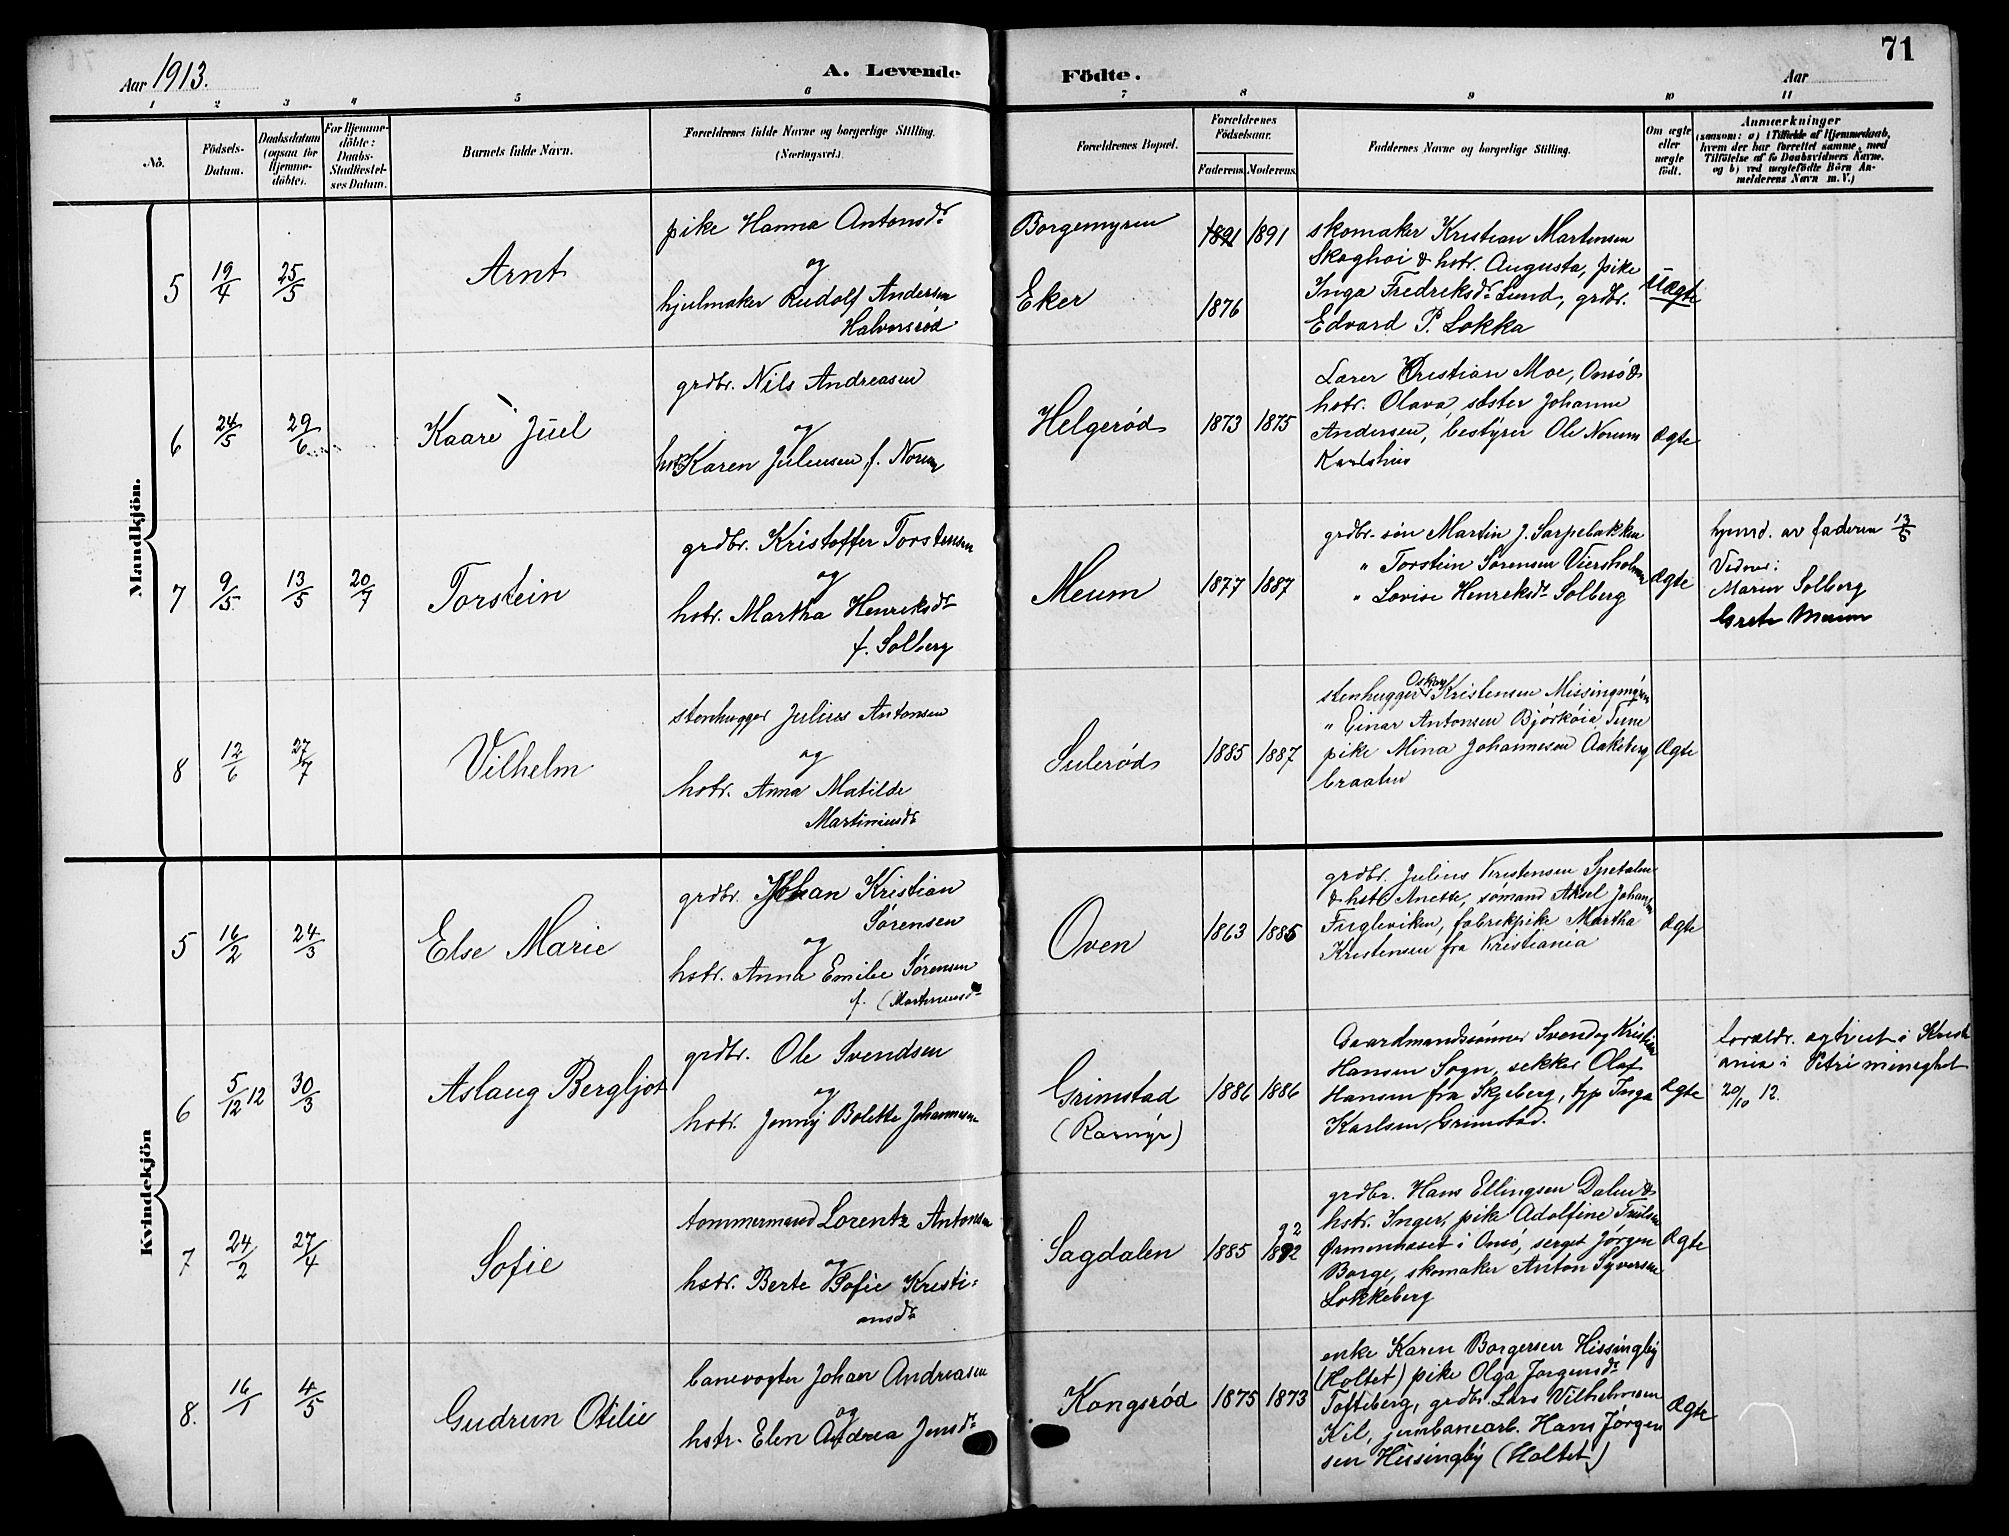 71
Aar 1913.
A. Levende Födte.
Aar
1 2 3 4 5 6 7 8 9 10 11
No.
Födsels-
Datum.
Daabsdatum
(ogsaa for
Hjemme-
döbte).
For Hjemme-
döbte:
Daabs-
Stadfæstel-
ses Datum.
Barnets fulde Navn.
Forældrenes fulde Navne og borgerlige Stilling.
(Næringsvei.)
Forældrenes Bopæl.
Forældrenes
Födselsaar.
Faderens. Moderens.
Faddernes Navne og borgerlige Stilling.
Om ægte
eller
uægte
født.
Anmærkninger
(saasom: a) i Tilfælde af Hjemmedaab,
hvem der har forrettet samme, med
Tilføielse af to Daabsvidners Navne.
og b) ved uægtefødte Börn An-
melderens Navn m. V.)
Mandkjön.
5 19/4 25/5
Arnt
pike Hanna Antonsdr
og
hjulmaker Rudolf Andersen
Halvorsrød
Borgemyren
Eker
1891 1891
1876
skomaker Kristian Martensen
Skoghoi & hstr. Augusta, pike
Inga Fredriksdr Lund, grdbr.
Edvard P. Lokka
Uægte
6 24/5 29/6
Kaare Juel
grdbr. Nils Andreasen
og
hstr Karen Juliussen f. Norum
Helgerød
1873 1875
Lærer Kristian Moe, Onsö &
hstr. Olava, søster Johanne
Andersen, bestyrer Ole Norum
Karlshus
ægte
7 9/5 13/5 20/7
Torstein
grdbr. Kristoffer Torstensen
og
hstr. Martha Henriksdr
f. Solberg
Meum
1877 1887
grdbr. søn Martin J. Sarpebakken
" Torstein Sørensen Viersholmen
" Lovise Henriksdr Solberg
ægte
hjemd. av faderen 13/5
Vidner:
Maren Solberg
Grete Meum
8 12/6 27/7
Vilhelm
stenhugger Julius Antonsen
og
hstr. Anna Matilde
Martiniusdr
Sulerød
1885 1887
stenhugger Oskar Kristensen Missingmyren
" Einar Antonsen Bjórkóia Tune
pike Mina Johannesen Aakeberg
braaten
Ægte
Kvindekjön
5 16/2 24/3
Else Marie
grdbr. Johan Kristian
Sørensen
og
hstr. Anna Emilie Sørensen
f. (Martiniusdr
Oven
1863 1885
grdbr. Julius Kristensen Spetalen
& hstr Anette, sømand Aksel Johansen
Fugleviken, fabrikpike Martha
Kristensen fra Kristiania
Ægte
6 5/12 12 30/3
Aslaug Bergljot
grdbr. Ole Svendsen
og
hstr. Jenny Bolette Johannesen
Grimstad
(Rørmyr)
1886 1886
Gaardmandssønner Svend og Kristian
Hansen Sogn, sekker Olaf
Hansen fra Skjeberg, typ Inga
Karlsen, Grimstad.
Ægte
foreldr. egtviet i Kristi
ania i Petri menighet
20/10 12.
7 24/2 27/4
Sofie
tømmermand Lorentz Antonsen
og
hstr. Berte Sofie Kristi-
ansdr
Sagdalen
1885 1892
92
grdbr. Hans Ellingsen Dalen &
hstr. Inger, pike Adolfine
i Onsö, Jørgen
Borge, skomaker Anton Syversen
Lokkeberg
Ægte
8. 16/1 4/5
Gudrun Otilie
banevogter Johan Andreasen
og
hstr. Elen Andrea Jensdr
Kongsrød
1875 1873
enke Karen Borgersen Hissingby
(Holtet) pike Olga Jørgensdr
Tofteberg, grdbr. Lars Vilhelmsen
Kil, jernbanearb. Hans Jørgen
sen Hissingby (Holtet)
Ægte